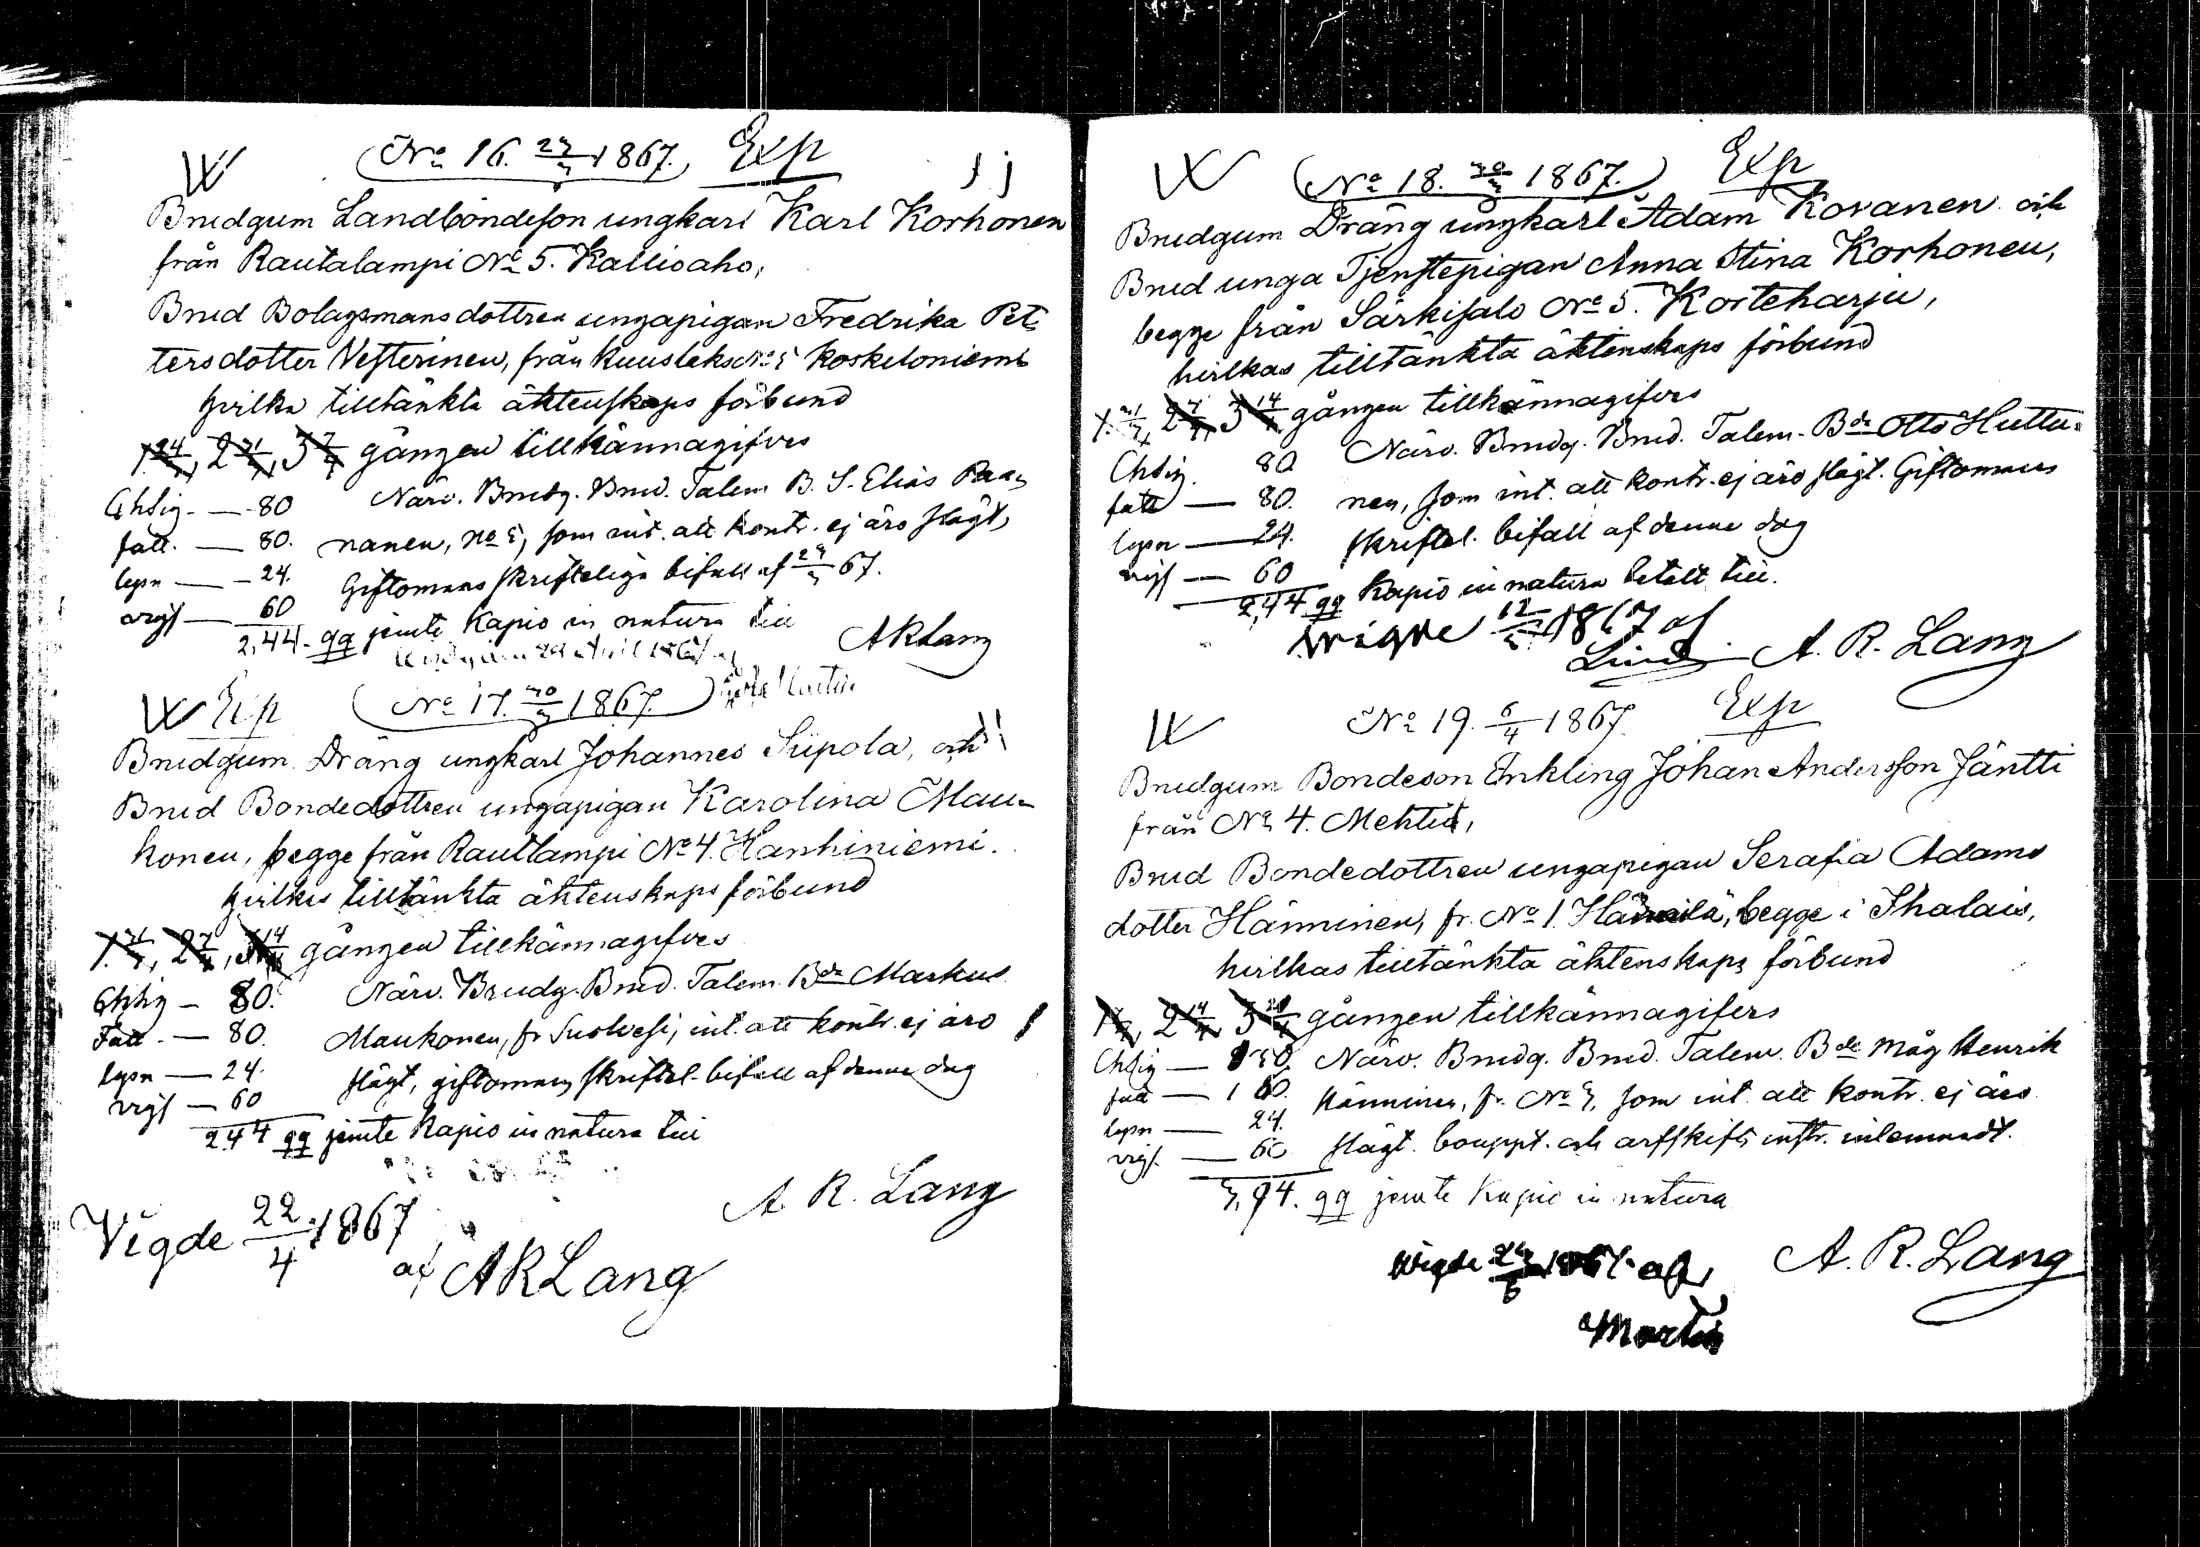 W No 16. 23/3 1867. Exp
Brudgum Landbondeson ungkarl Karl Korhonen
från Rautalampi No 5. Kallioaho,
Brud Bolagsmansdottren ungapigan Fredrika Pet-
tersdotter Vesterinen, från No 5 Koskeloniemi
hvilka tilltänkta äktenskaps förbund
1 24/3, 2 31/3, 3 7/4 gången tillkännagifves
Chtig — 80 Närv. Brudg. Brud. Talem. B. S. Elias Paa-
fatt. — 80. nanen, No 5, som int. att kontr. ej äro slägt,
lysn — 24. Giftomans skriftliga bifall af 67.
vigs — 60
2,44 qq jemte Kapio in natura till
AR Lang
W Exp No 17. 30/3 1867. Martin
Brudgum Dräng ungkarl Johannes Siipola, och
Brud Bondedottren ungapigan Karolina Mau-
konen, begge från Rautlampi No 4. Hanhiniemi.
hvilkas tilltänkta äktenskaps förbund
1 31/3, 2 7/4, 3 14/4 gången tillkännagifves
Chtig — 80. Närv. Brudg. Brud. Talem. Bde Markus
Fatt. — 80. Maukonen, fr Suolvesi, int. att kontr. ej äro
lysn — 24. slägt, giftomans skriftel. bifall af denna dag
vigs — 60
2,44 qq jemte Kapio in natura till
A. R. Lang
Vigde 22/4 1867
af AR Lang
W No 18. 30/3 1867. Exp
Brudgum Dräng ungkarl Adam Kovanen och
Brud unga Tjenstepigan Anna Stina Korhonen,
begge från Särkisalo No 5. Korteharju,
hvilkas tilltänkta äktenskaps förbund
1 31/3, 2 7/4, 3 14/4 gången tillkännagifves
Chtig. 80 Närv. Brudg. Brud. Talem. Bde Otto Huttu-
fatt — 80. nen, som int. att kontr. ej äro slägt. Giftomans
lysn — 24. skriftel. bifall af denna dag
vigs — 60
2,44 qq Kapio in natura betalt till.
wigde 12/5 1867 af
A. R. Lang
W No 19. 6/4 1867. Exp
Brudgum Bondeson Enkling Johan Andersson Jäntti
från No 4. Mehtiö,
Brud Bondedottren ungapigan Serafia Adams
dotter Hänninen, fr. No 1. begge i Ihalais,
hvilkas tilltänkta äktenskaps förbund
1 7/4, 2 14/4, 3 gången tillkännagifves
Chtig — Närv. Brudg. Brud. Talem. Bde Måg Henrik
fatt — 1 60. Hänninen, fr. No 3, som int. att kontr. ej äro
lysn — 24. slägt. bouppt. och arfskifts instr. inlemnadt.
vigs. — 60
3,94. qq jemte Kapio in natura
A. R. Lang
wigde 1867 af
Martin